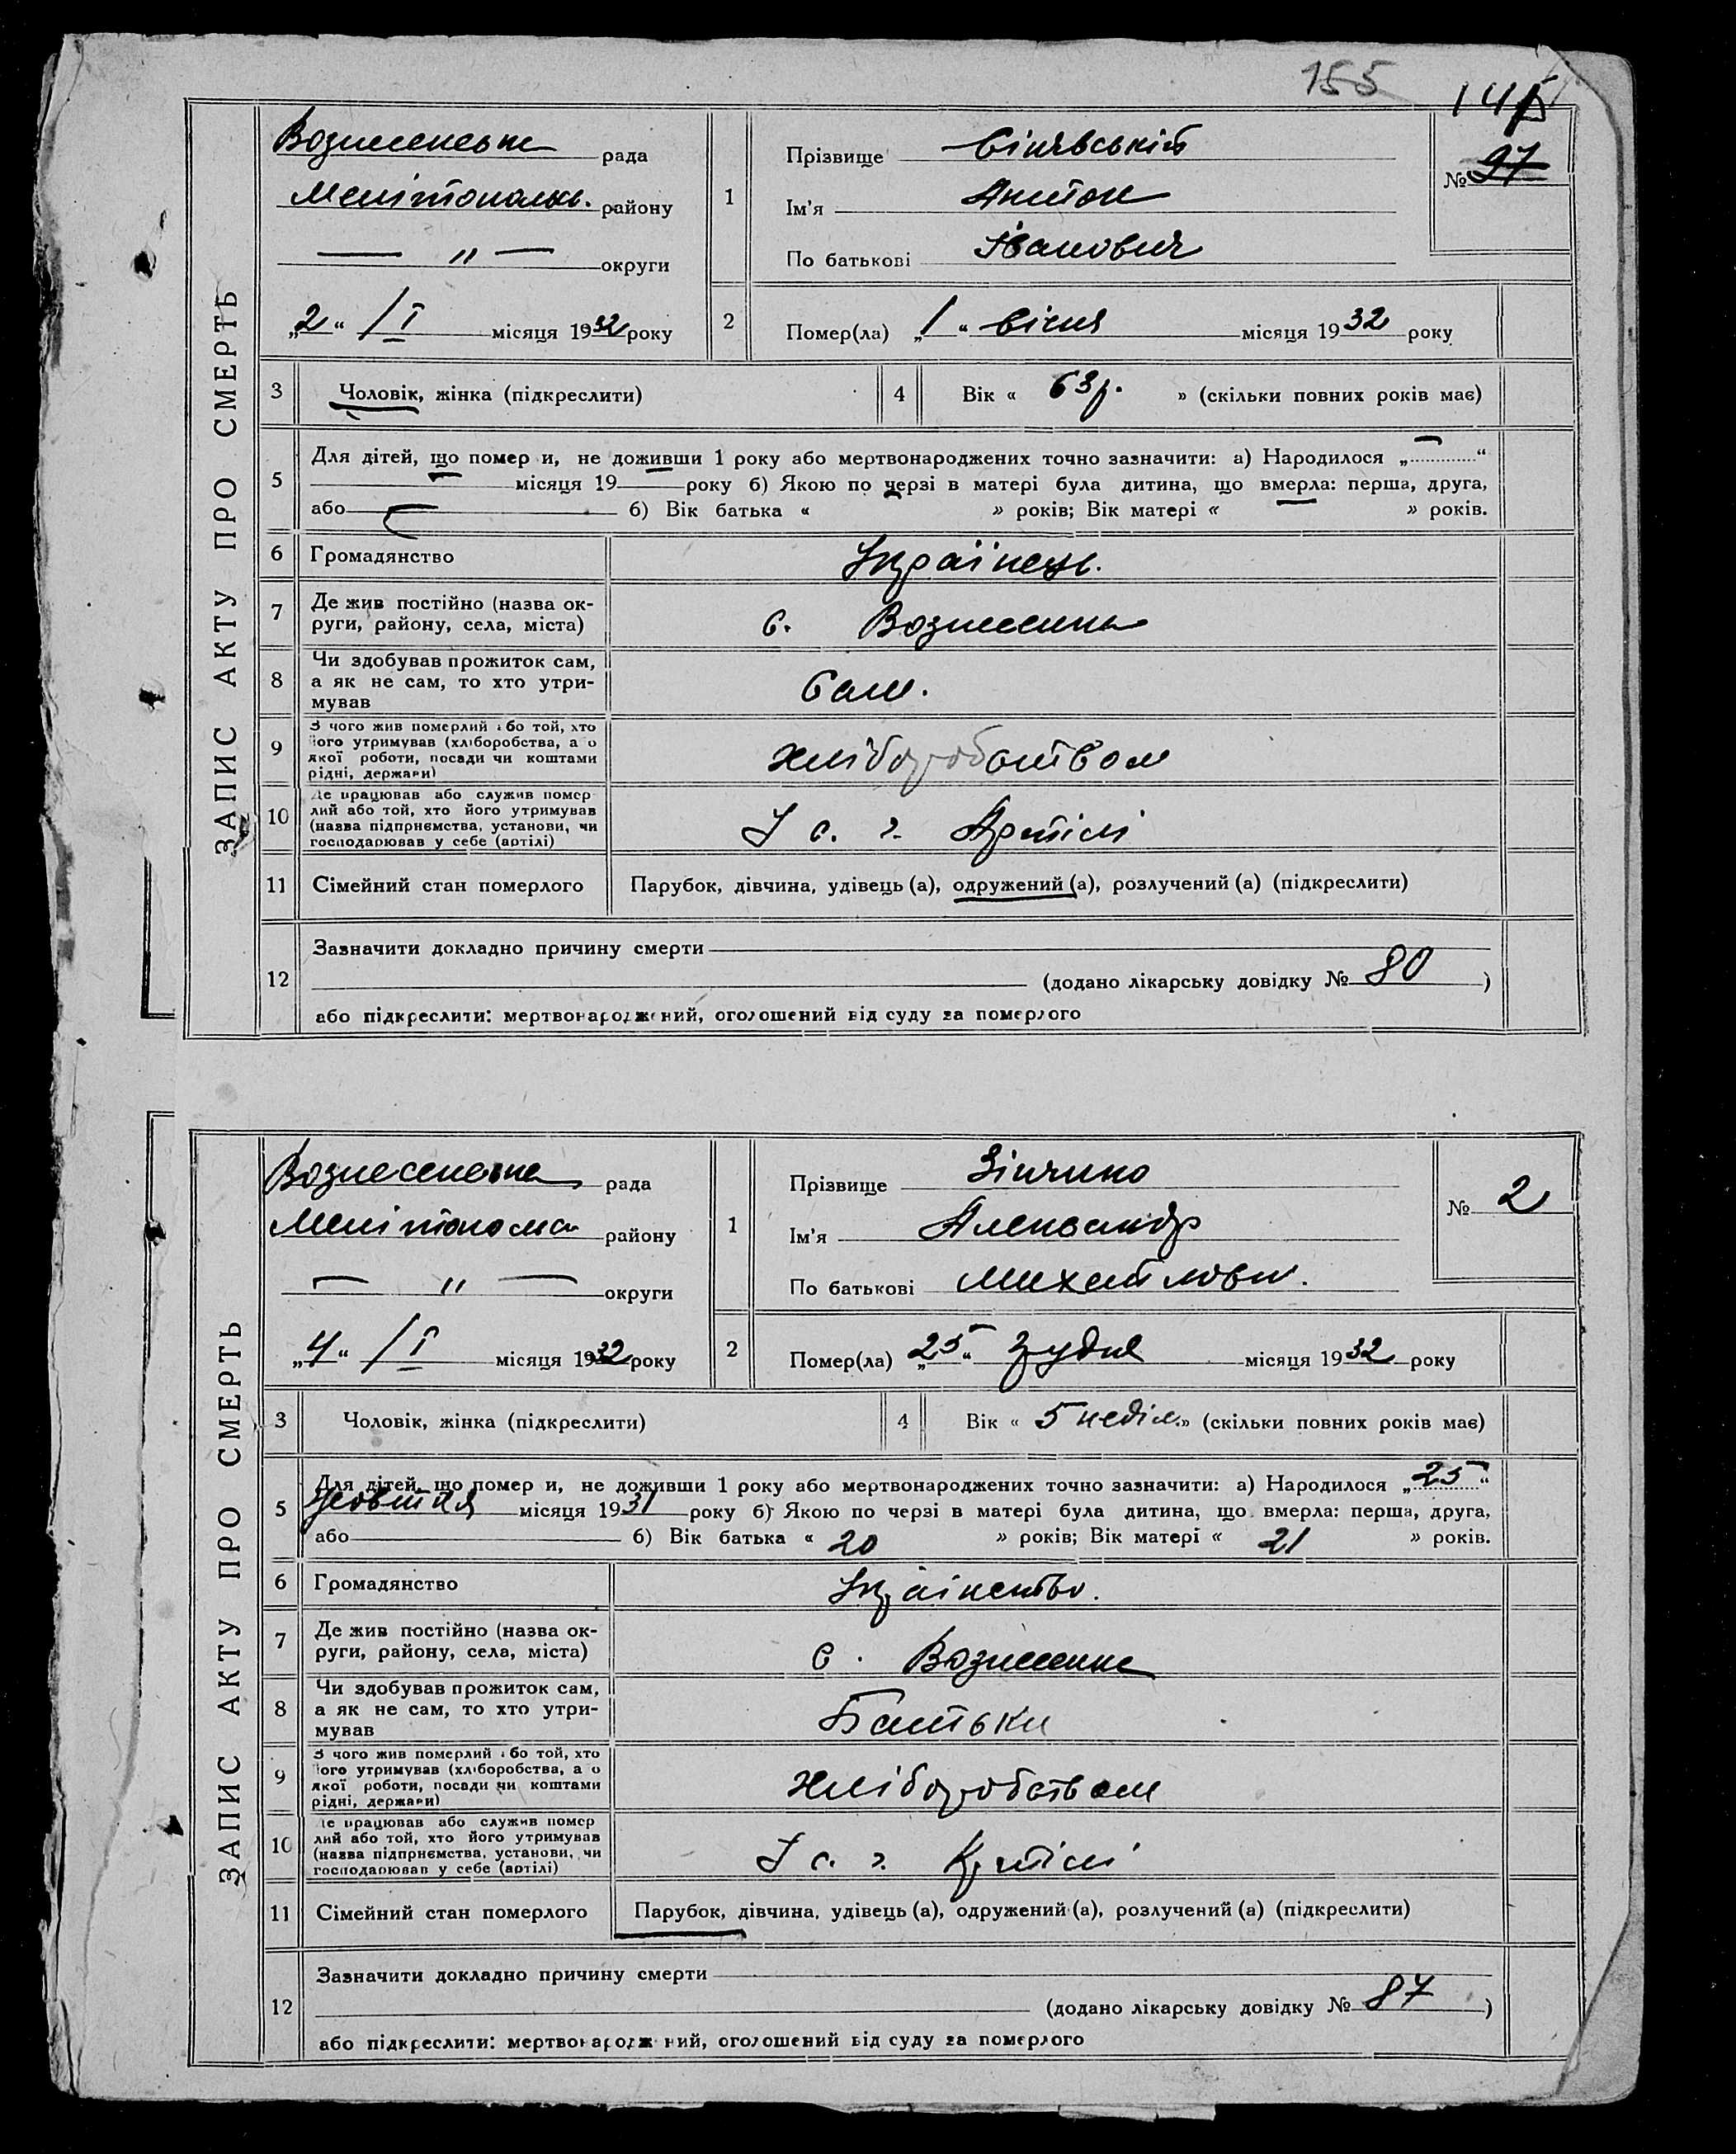 155
145
ЗАПИС АКТУ ПРО СМЕРТЬ
рада
Мелітопольс. району
— „ — округи
„2“ /I місяця 1932 року
1
Прізвище
Ім'я Антон
По батькові Іванович
№ 97
2
Помер(ла) „1“ січня місяця 1932 року
3
Чоловік, жінка (підкреслити)
4
Вік « 63 р. » (скільки повних років має)
5
Для дітей, що помер и, не доживши 1 року або мертвонароджених точно зазначити: а) Народилося „ — “
— місяця 19 — року б) Якою по черзі в матері була дитина, що вмерла: перша, друга,
або — б) Вік батька « » років; Вік матері « — » років.
6
Громадянство
Українець.
7
Де жив постійно (назва ок-
руги, району, села, міста)
с. Вознесенка
8
Чи здобував прожиток сам,
а як не сам, то хто утри-
мував
Сам.
9
З чого жив померлий або той, хто
його утримував (хліборобства, або
якої роботи, посади чи коштами
рідні, держави)
хліборобством
10
Де працював або служив помер
лий або той, хто його утримував
(назва підприємства, установи, чи
господарював у себе (артілі)
У с. г. Артілі
11
Сімейний стан померлого
Парубок, дівчина, удівець (а), одружений (а), розлучений (а) (підкреслити)
12
Зазначити докладно причину смерти
(додано лікарську довідку № 80 )
або підкреслити: мертвонароджений, оголошений від суду за померлого
ЗАПИС АКТУ ПРО СМЕРТЬ
Вознесенська рада
району
— „ — округи
„4“ /I місяця 1932 року
1
Прізвище Зінченко
Ім'я Александр
По батькові Михайлови.
№ 2
2
Помер(ла) „25“ грудня місяця 1932 року
3
Чоловік, жінка (підкреслити)
4
Вік « 5 неділ. » (скільки повних років має)
5
Для дітей, що помер и, не доживши 1 року або мертвонароджених точно зазначити: а) Народилося „25“
жовтня місяця 1931 року б) Якою по черзі в матері була дитина, що вмерла: перша, друга,
або б) Вік батька « 20 » років; Вік матері « 21 » років.
6
Громадянство
7
Де жив постійно (назва ок-
руги, району, села, міста)
с. Вознесенка
8
Чи здобував прожиток сам,
а як не сам, то хто утри-
мував
Батьки
9
З чого жив померлий або той, хто
його утримував (хліборобства, або
якої роботи, посади чи коштами
рідні, держави)
хліборобством
10
Де працював або служив помер
лий або той, хто його утримував
(назва підприємства, установи, чи
господарював у себе (артілі)
У с. г. Артілі
11
Сімейний стан померлого
Парубок, дівчина, удівець (а), одружений (а), розлучений (а) (підкреслити)
12
Зазначити докладно причину смерти
(додано лікарську довідку № 87 )
або підкреслити: мертвонароджений, оголошений від суду за померлого